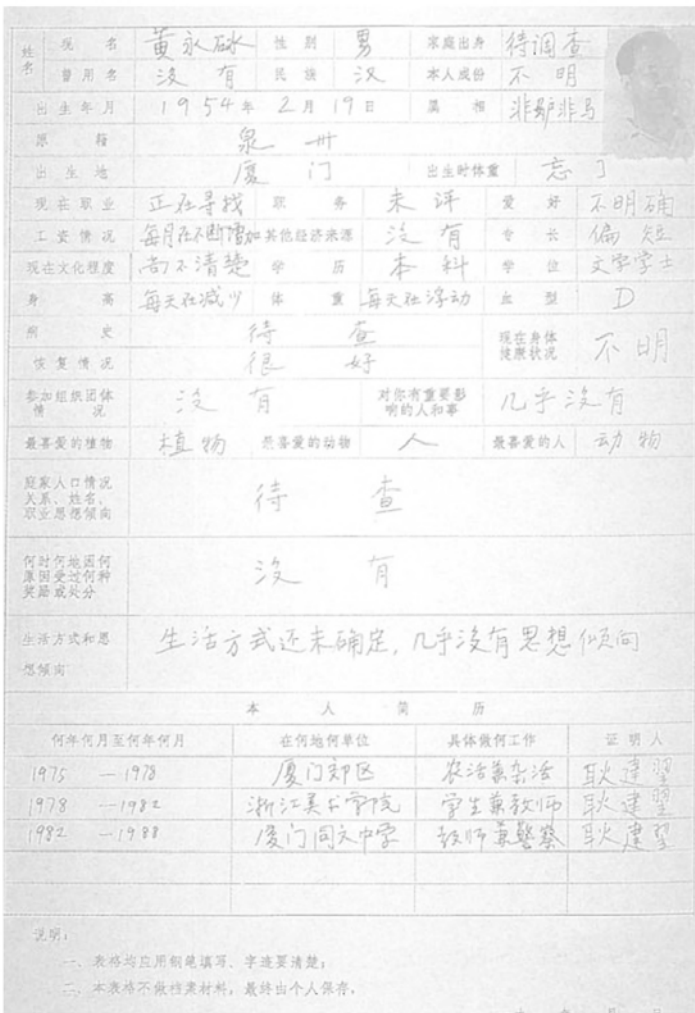 姓名 现名 黄永砯 性别 男 家庭出身 待调查
曾用名 没有 民族 汉 本人成份 不明
出生年月 1954年2月19日 属相 非驴非马
原籍 泉卅
出生地 厦门 出生时体重 忘了
现在职业 正在寻找 职务 未评 爱好 不明确
工资情况 每月在不断增加 其他经济来源 没有 专长 偏短
现在文化程度 尚不清楚 学历 本科 学位 文学学士
身高 每天在减少 体重 每天在浮动 血型 D
病史 待查 现在身体健康状况 不明
恢复情况 很好
参加组织团体情况 没有 对你有重要影响的人和事 几乎没有
最喜爱的植物 植物 最喜爱的动物 人 最喜爱的人 动物
庭家人口情况
关系、姓名、
职业思想倾向 待查
何时何地因何
原因受过何种
奖励或处分 没有
生活方式和思
想倾向 生活方式还未确定,几乎没有思想倾向
本人简历
何年何月至何年何月 在何地何单位 具体做何工作 证明人
1975 —1978 厦门郊区 农活兼杂活 耿建翌
1978 —1982 浙江美术学院 学生兼教师 耿建翌
1982 —1988 厦门同文中学 教师兼警察 耿建翌
说明:
一、表格均应用钢笔填写、字迹要清楚;
二、本表格不做档案材料,最终由个人保存。
年 月 日